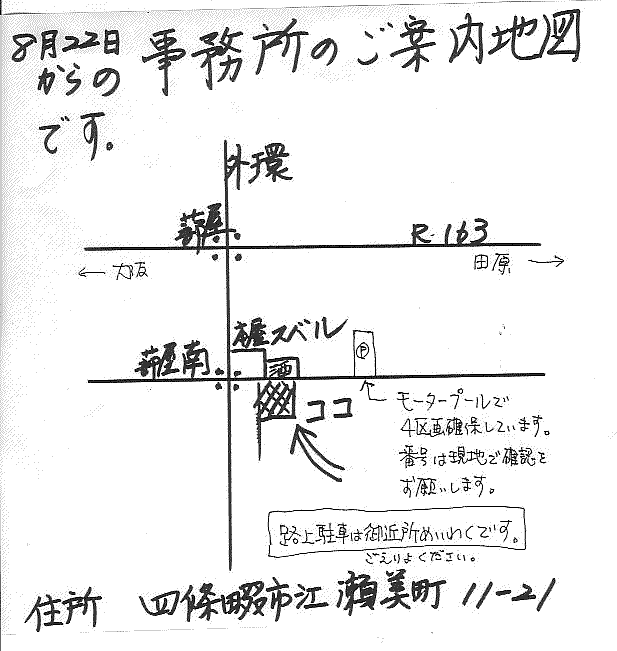 8月22日
からの
です。
事務所のご案内地図
外環
蔀屋
R-163
← 大阪
田原 →
本屋スバル
蔀屋南
酒
P
ココ
モータープールで
4区画確保しています。
番号は現地で確認を
お願いします。
路上駐車は御近所めいわくです。
ごえんりょください。
住所 四條畷市江瀬美町 11-21